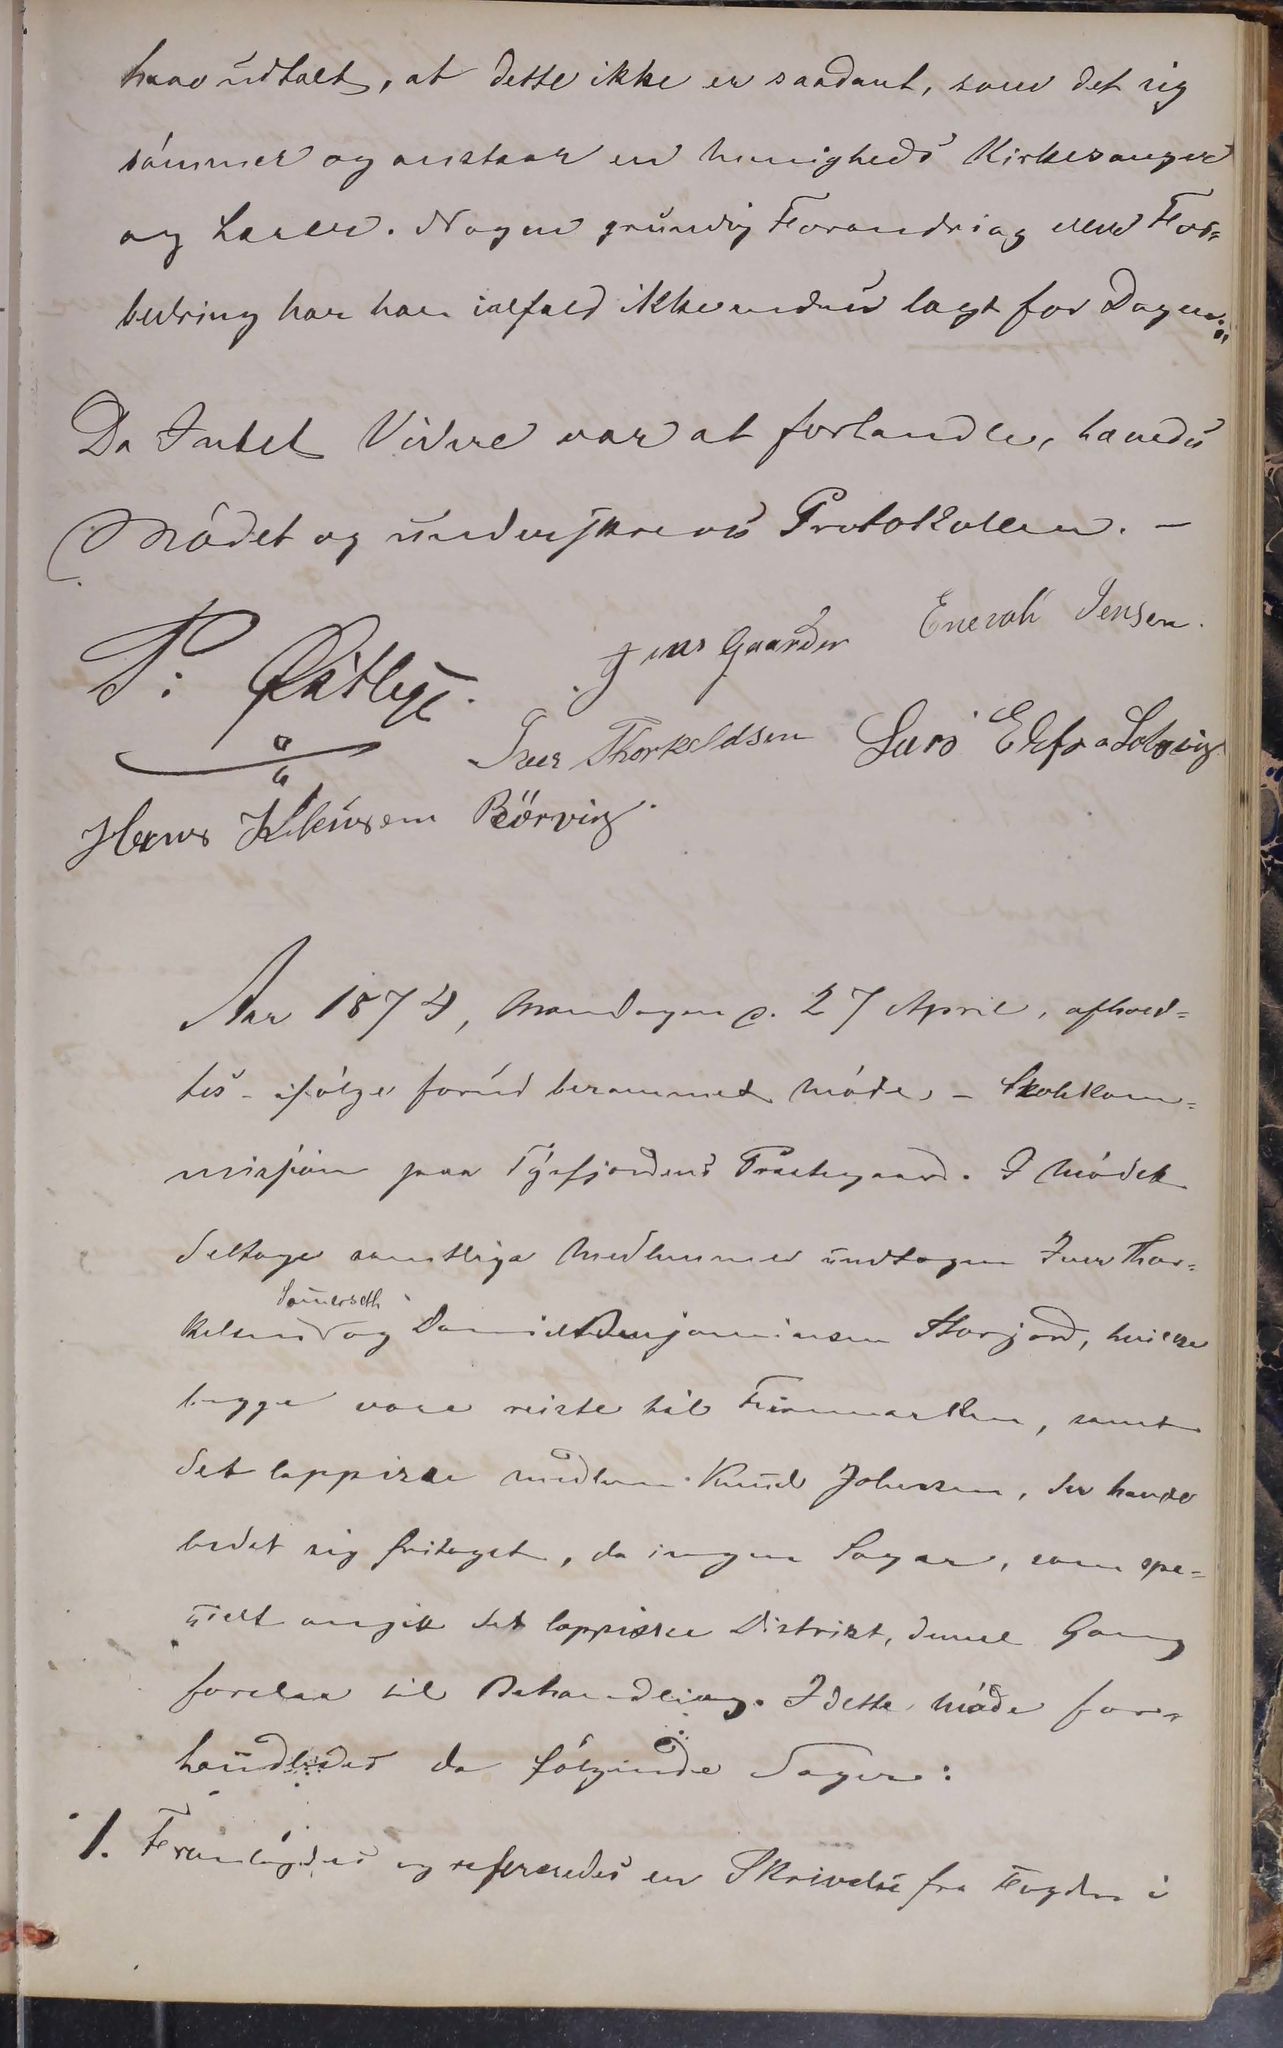 have udtalt, at dette ikke er saadant, som det sig
sömmer og anstaar en Menigheds Kirkesanger
og Lærer. Nogen grundig Forandring eller For-
bedring har han ialfald ikke endnu lagt for Dagen."
Da Intet Videre var at forhandle, hævedes
Mödet og underskreves Protokollen. –
P: Östbye. Jens Gaarder Enevold Jensen.
Iver Thorkeldsen Lars Elefs
Hans Körving.
Aar 1874, Mandagen d. 27 April, afhold-
tes – ifölge forud berammet Möde, – Skolekom-
mission paa Tysfjordens Præstegaard. I Mödet
deltoge samtlige Medlemmer undtagen Iver Thor-
Sömerseth
kelsen og Daniel Benjaminsen Storjord, hvilke
begge vare reiste til Finmarken, samt
det lappiske Medlem Knud Johnsen, der havde
bedet sig fritaget, da ingen Sager, som spe-
cielt angik det lappiske Distrikt, denne Gang
forelaa til Behandling. I dette Möde for-
handledes da fölgende Sager:
1. Fremlagdes og refereredes en Skrivelse fra Fogden i